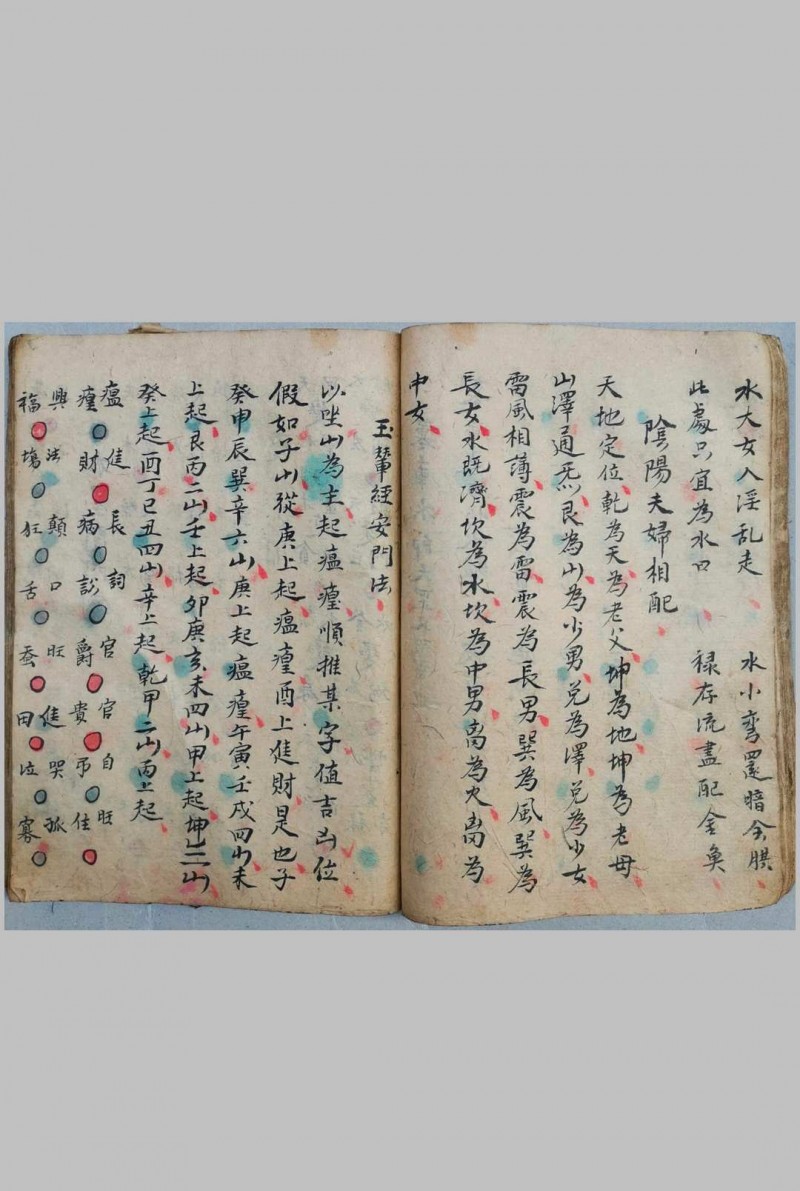 水大女人淫乱走　水小彎還暗今膑
此處只宜為水口　禄存流盡配金奐
陰陽夫婦相配
天地定位乾為天為老父坤為地坤為老母
山澤通炁艮為山為少男兑為澤兑為少女
雷風相薄震為雷震為長男巽為風巽為
長女水既濟坎為水坎為中男离為火离為
中女
玉輦經安門法
以坐山為主起瘟㾮順推某字值吉凶位
假如子山從庚上起瘟㾮酉上進財是也子
癸申辰巽辛六山庚上起瘟㾮午寅壬戌四山未
上起艮丙二山壬上起卯庚亥未四山甲上起坤乙二山
癸上起酉丁巳丑四山辛上起乾甲二山丙上起
瘟㾮　進財　長病　詞訟　官爵　官貴　自吊　旺庄
興福　法場　顛狂　口舌　旺蚕　進田　哭泣　孤寡